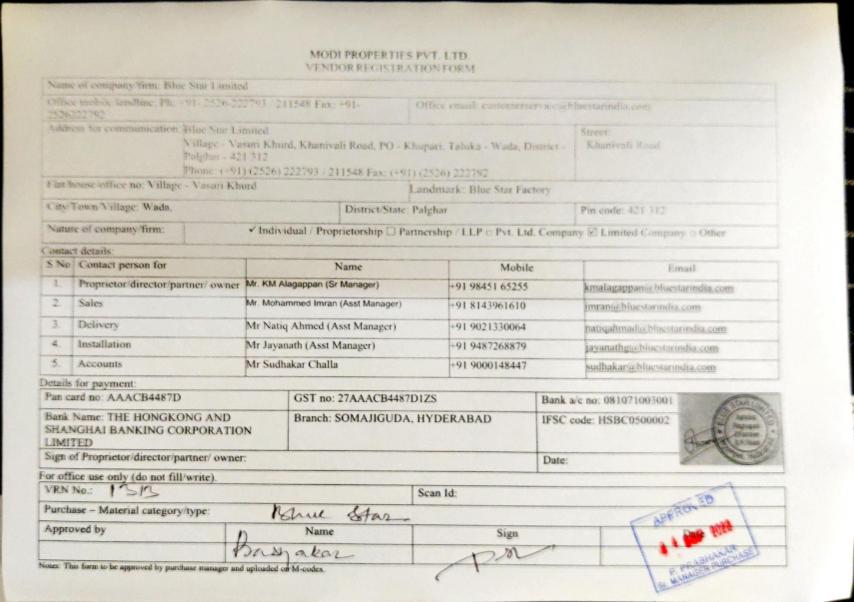 MODI PROPERTIES PVT. LTD.
VENDOR REGISTRATION FORM
Name of company/firm: Blue Star Limited
Office mobile landline: Ph: +91- 2526-222793 / 211548 Fax: +91- 2526222792
Office email: customerservice@bluestarindia.com
Address for communication: Blue Star Limited
Village - Vasuri Khurd, Khanivali Road, PO - Khupari, Taluka - Wada, District - Palghar - 421 312
Phone: (+91) (2526) 222793 / 211548 Fax: (+91) (2526) 222792
Street: Khanivali Road
Flat/house/office no: Village - Vasuri Khurd
Landmark: Blue Star Factory
City/Town/Village: Wada,
District/State: Palghar
Pin code: 421 312
Nature of company/firm: ✓ Individual / Proprietorship ☐ Partnership / LLP ☐ Pvt. Ltd. Company ☑ Limited Company ☐ Other
Contact details:
S No Contact person for Name Mobile Email
1. Proprietor/director/partner/ owner Mr. KM Alagappan (Sr Manager) +91 98451 65255 kmalagappan@bluestarindia.com
2. Sales Mr. Mohammed Imran (Asst Manager) +91 8143961610 imran@bluestarindia.com
3. Delivery Mr Natiq Ahmed (Asst Manager) +91 9021330064 natiqahmad@bluestarindia.com
4. Installation Mr Jayanath (Asst Manager) +91 9487268879 jayanathg@bluestarindia.com
5. Accounts Mr Sudhakar Challa +91 9000148447 sudhakar@bluestarindia.com
Details for payment:
Pan card no: AAACB4487D
GST no: 27AAACB4487D1ZS
Bank a/c no: 081071003001
Bank Name: THE HONGKONG AND SHANGHAI BANKING CORPORATION LIMITED
Branch: SOMAJIGUDA, HYDERABAD
IFSC code: HSBC0500002
BLUE STAR LIMITED
Sign of Proprietor/director/partner/ owner:
Date:
For office use only (do not fill/write).
VRN No.: 1313
Scan Id:
Purchase – Material category/type: Blue Star
Approved by Name Sign Date
APPROVED
P. PRABHAKAR
Sr. MANAGER PURCHASE
Notes: This form to be approved by purchase manager and uploaded on M-codes.